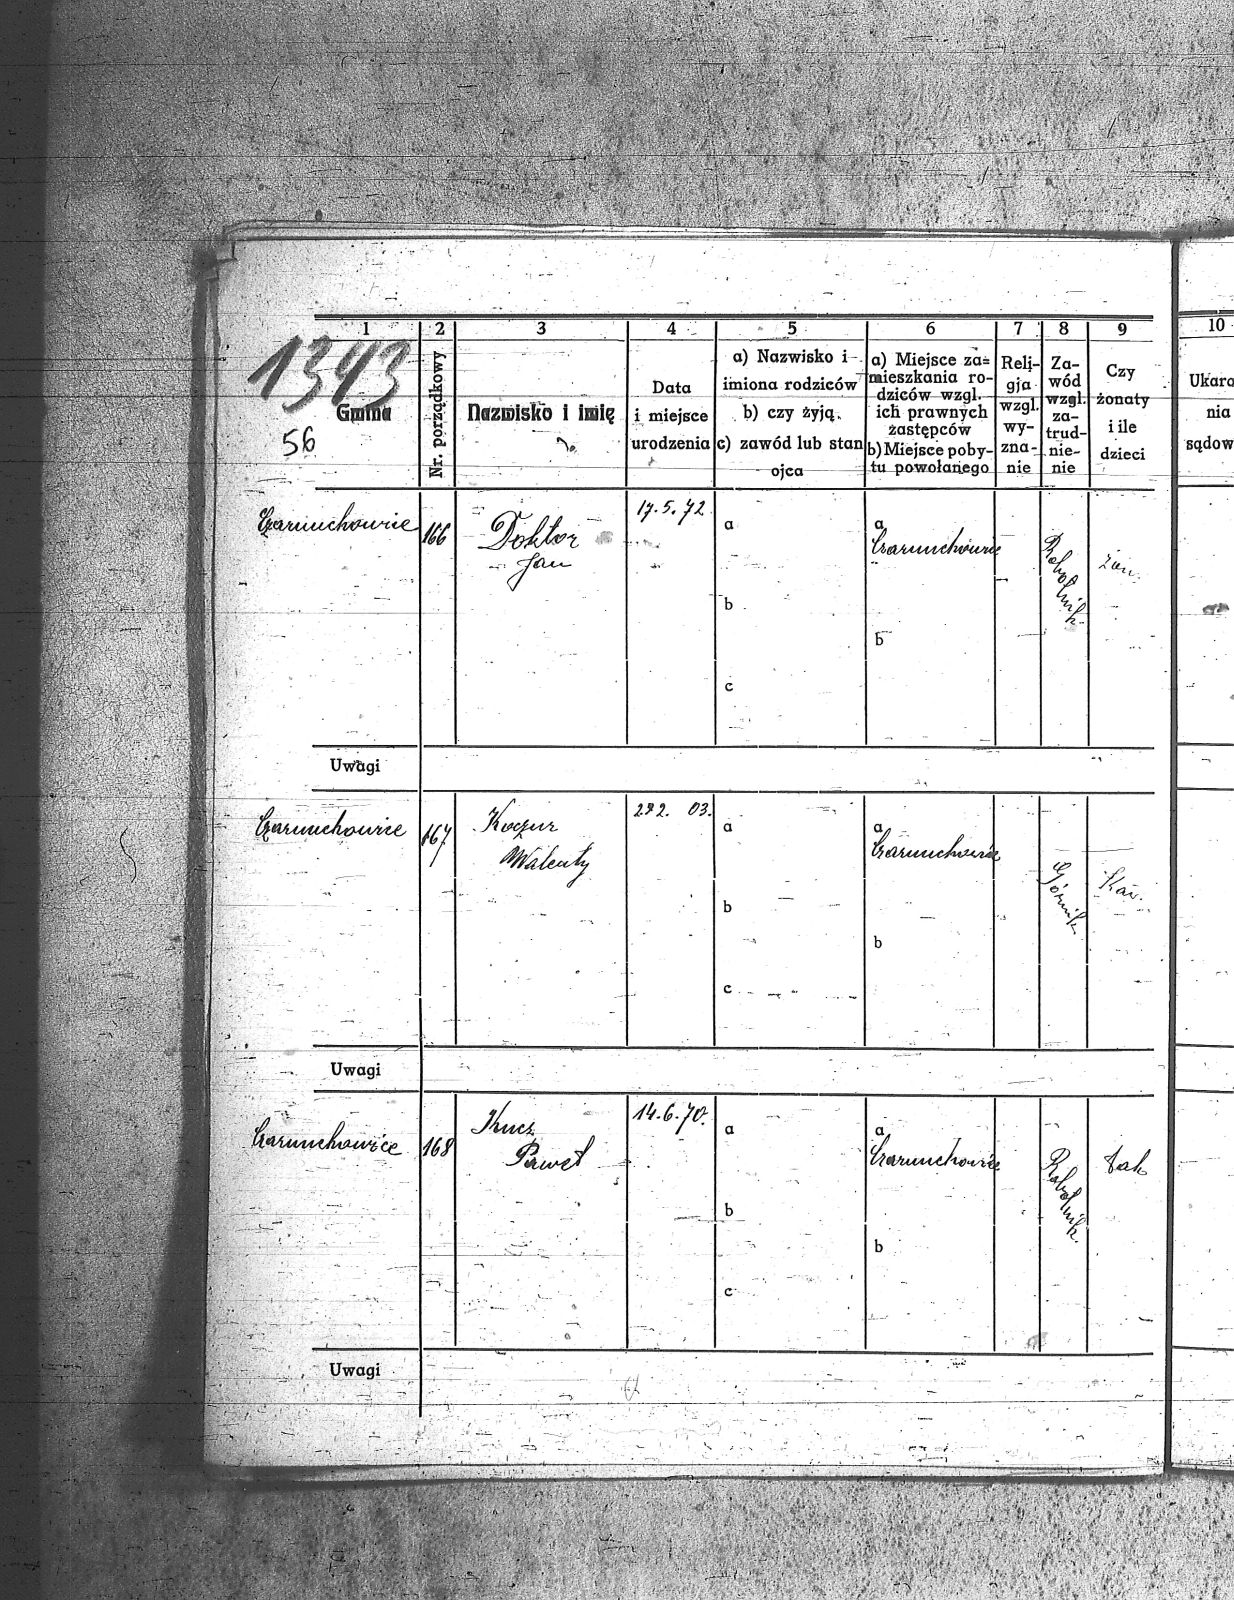 1 2 3 4 5 6 7 8 9 10
1343
56
Gmina
Nr. porządkowy
Nazwisko i imię
Data
i miejsce
urodzenia
a) Nazwisko i
imiona rodziców
b) czy żyją
c) zawód lub stan
ojca
a) Miejsce za=
mieszkania ro-
dziców wzgl.
ich prawnych
zastępców
b) Miejsce poby-
tu powołanego
Reli-
gja
wzgl.
wy-
zna-
nie
Za-
wód
wzgl.
za-
trud-
nie-
nie
Czy
żonaty
i ile
dzieci
Ukara
nia
sądow
Czarnuchowice
166
Doktor
Jan
17.5.72
a
b
c
a
Czarnuchowice
b
Robotnik
żon.
Uwagi
Czarnuchowice
167
Koczur
Walenty
03.
a
b
c
a
Czarnuchowice
b
Górnik
Kaw.
Uwagi
Czarnuchowice
168
Kucz
Paweł
14.6.70.
a
b
c
a
Czarnuchowice
b
Robotnik
tak
Uwagi